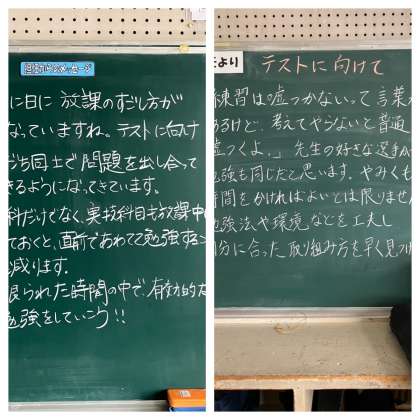 担任からのメッセージ
に日に 放課のすごし方が
なっていますね。テストに向け
だち同士で問題を出し合って
きるようになってきています。
科だけでなく、実技科目も放課中に
ておくと、直前であわてて勉強する
減ります。
限られた時間の中で、有効的な
勉強をしていこう!!
より
テストに向けて
練習は嘘つかないって言葉が
あるけど、考えてやらないと普通
嘘つくよ。」先生の好きな選手が
勉強も同じだと思います。やみくも
時間をかければよいとは限りません
勉強法や環境などを工夫し
自分に合った取り組み方を早く見つけ